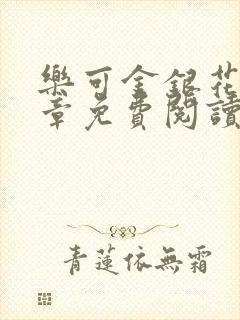 樂可金銀花
章免費閱讀
青蓮依無霜